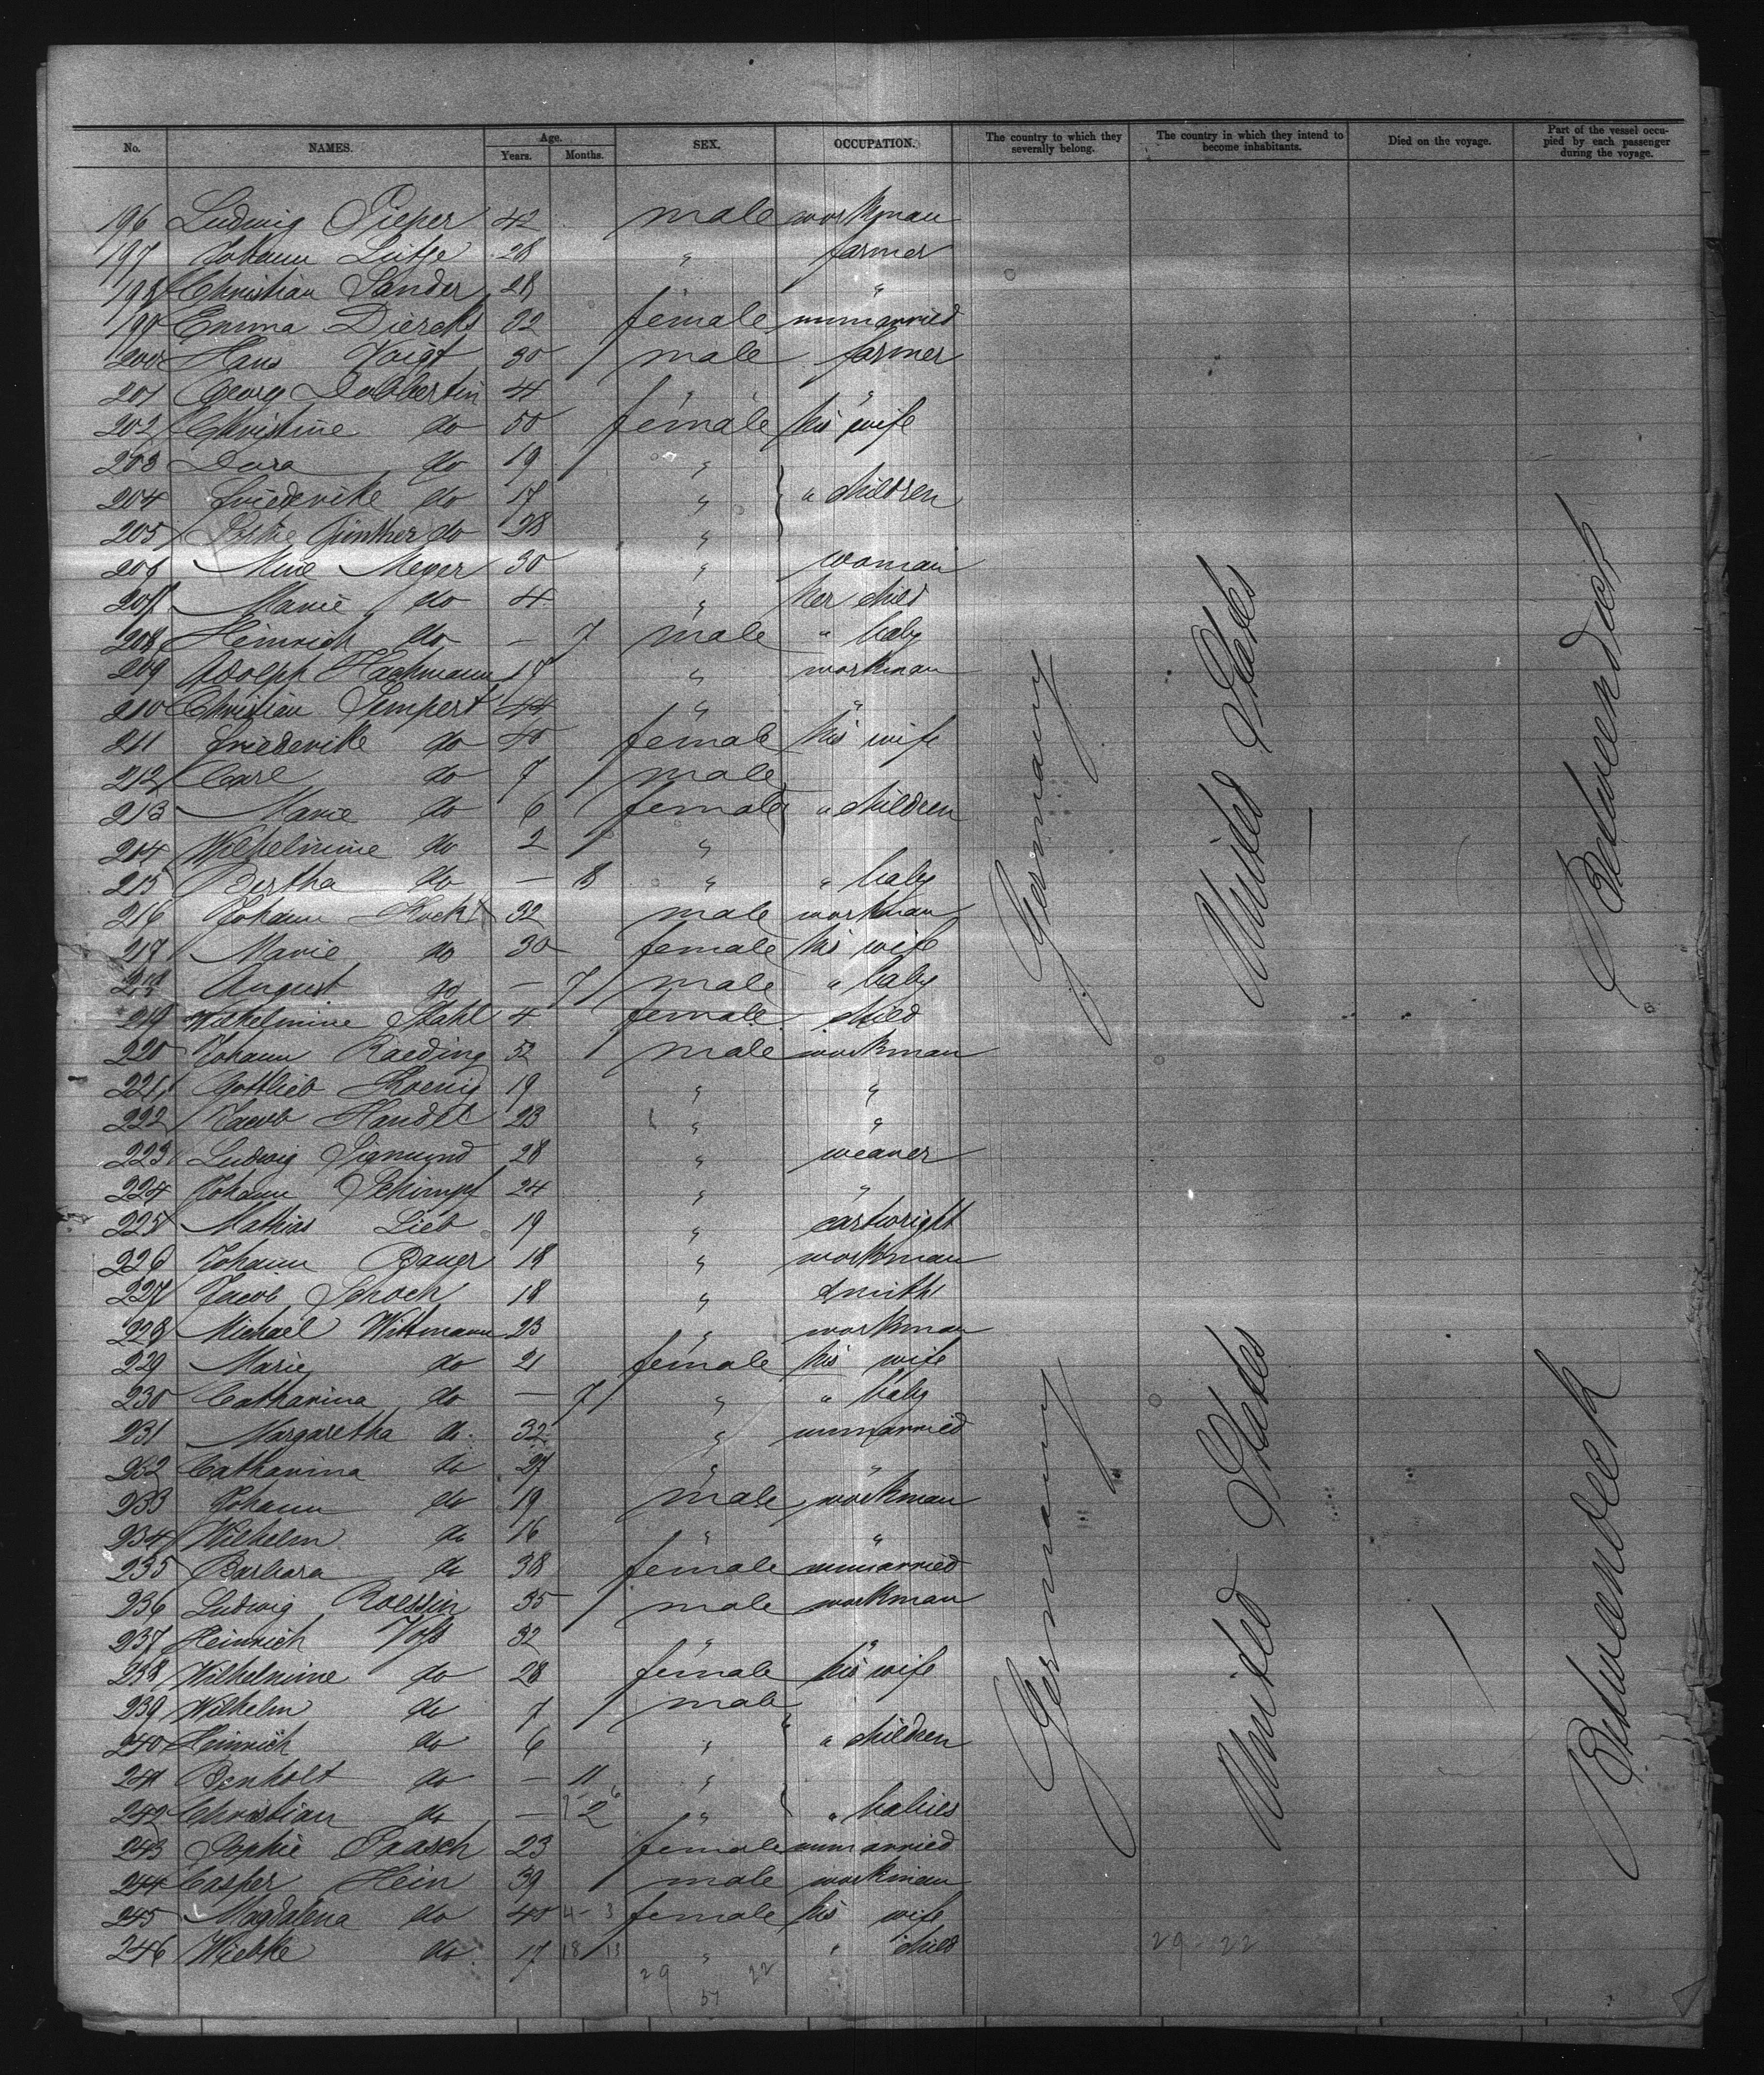 No. NAMES. Age. Years. Months. SEX. OCCUPATION. The country to which they severally belong. The country in which they intend to become inhabitants. Died on the voyage. Part of the vessel occupied by each passenger during the voyage.
196 Ludwig Pieper 42 male workman
197 Johann Lütje 28 " farmer
198 Christian Sander 28 " "
199 Emma Diercks 32 female unmarried
200 Hans Voigt 30 male farmer
201 Georg Dobbertin 4 " "
202 Christine do 50 female his wife
203 Dora do 19 "
204 Friederike do 17 " " children
205 Günther do 28 "
206 Mine Meyer 30 " woman
207 Marie do 4 " her child
208 Heinrich do — 7 male " baby
209 Adolph Hachmann 17 " workman
210 Christian Sempert 44 " "
211 Friederike do 40 female his wife
212 Carl do 7 male
213 Marie do 6 female " children
214 Wilhelmine do 2 "
215 Bertha do — 8 " " baby
216 Johann 32 male workman
217 Marie do 30 female his wife
218 August do — 7 male " baby
219 Wilhelmine Stahl 4 female child
220 Johann Raeding 52 male workman
221 Gottlieb Koenig 19 " "
222 Jacob Handel 23 " "
223 Ludwig Sigmund 28 " weaver
224 Johann Schimpf 24 " "
225 Mathias Lieb 19 " cartwright
226 Johann Bauer 18 " workman
227 Jacob Schoch 18 " smith
228 Michael Wittmann 23 " workman
229 Marie do 21 female his wife
230 Catharina do — 7 " " baby
231 Margaretha do 32 " unmarried
232 Catharina do 27 " "
233 Johann do 19 male workman
234 Wilhelm do 16 " "
235 Barbara do 38 female unmarried
236 Ludwig Roessin 35 male workman
237 Heinrich Voß 32 " "
238 Wilhelmine do 28 female his wife
239 Wilhelm do 7 male
240 Heinrich do 6 " " children
241 Benholt do — 11 "
242 Christian do — 2 " " babies
243 Sophie Paasch 23 female unmarried
244 Casper Hein 39 male workman
245 Magdalena do 40 4 - 3 female his wife
246 Wiebke do 17 18 13 " " child
29 22
51
29 - 22
Germany
United States
Betweendeck
Germany
United States
Betweendeck